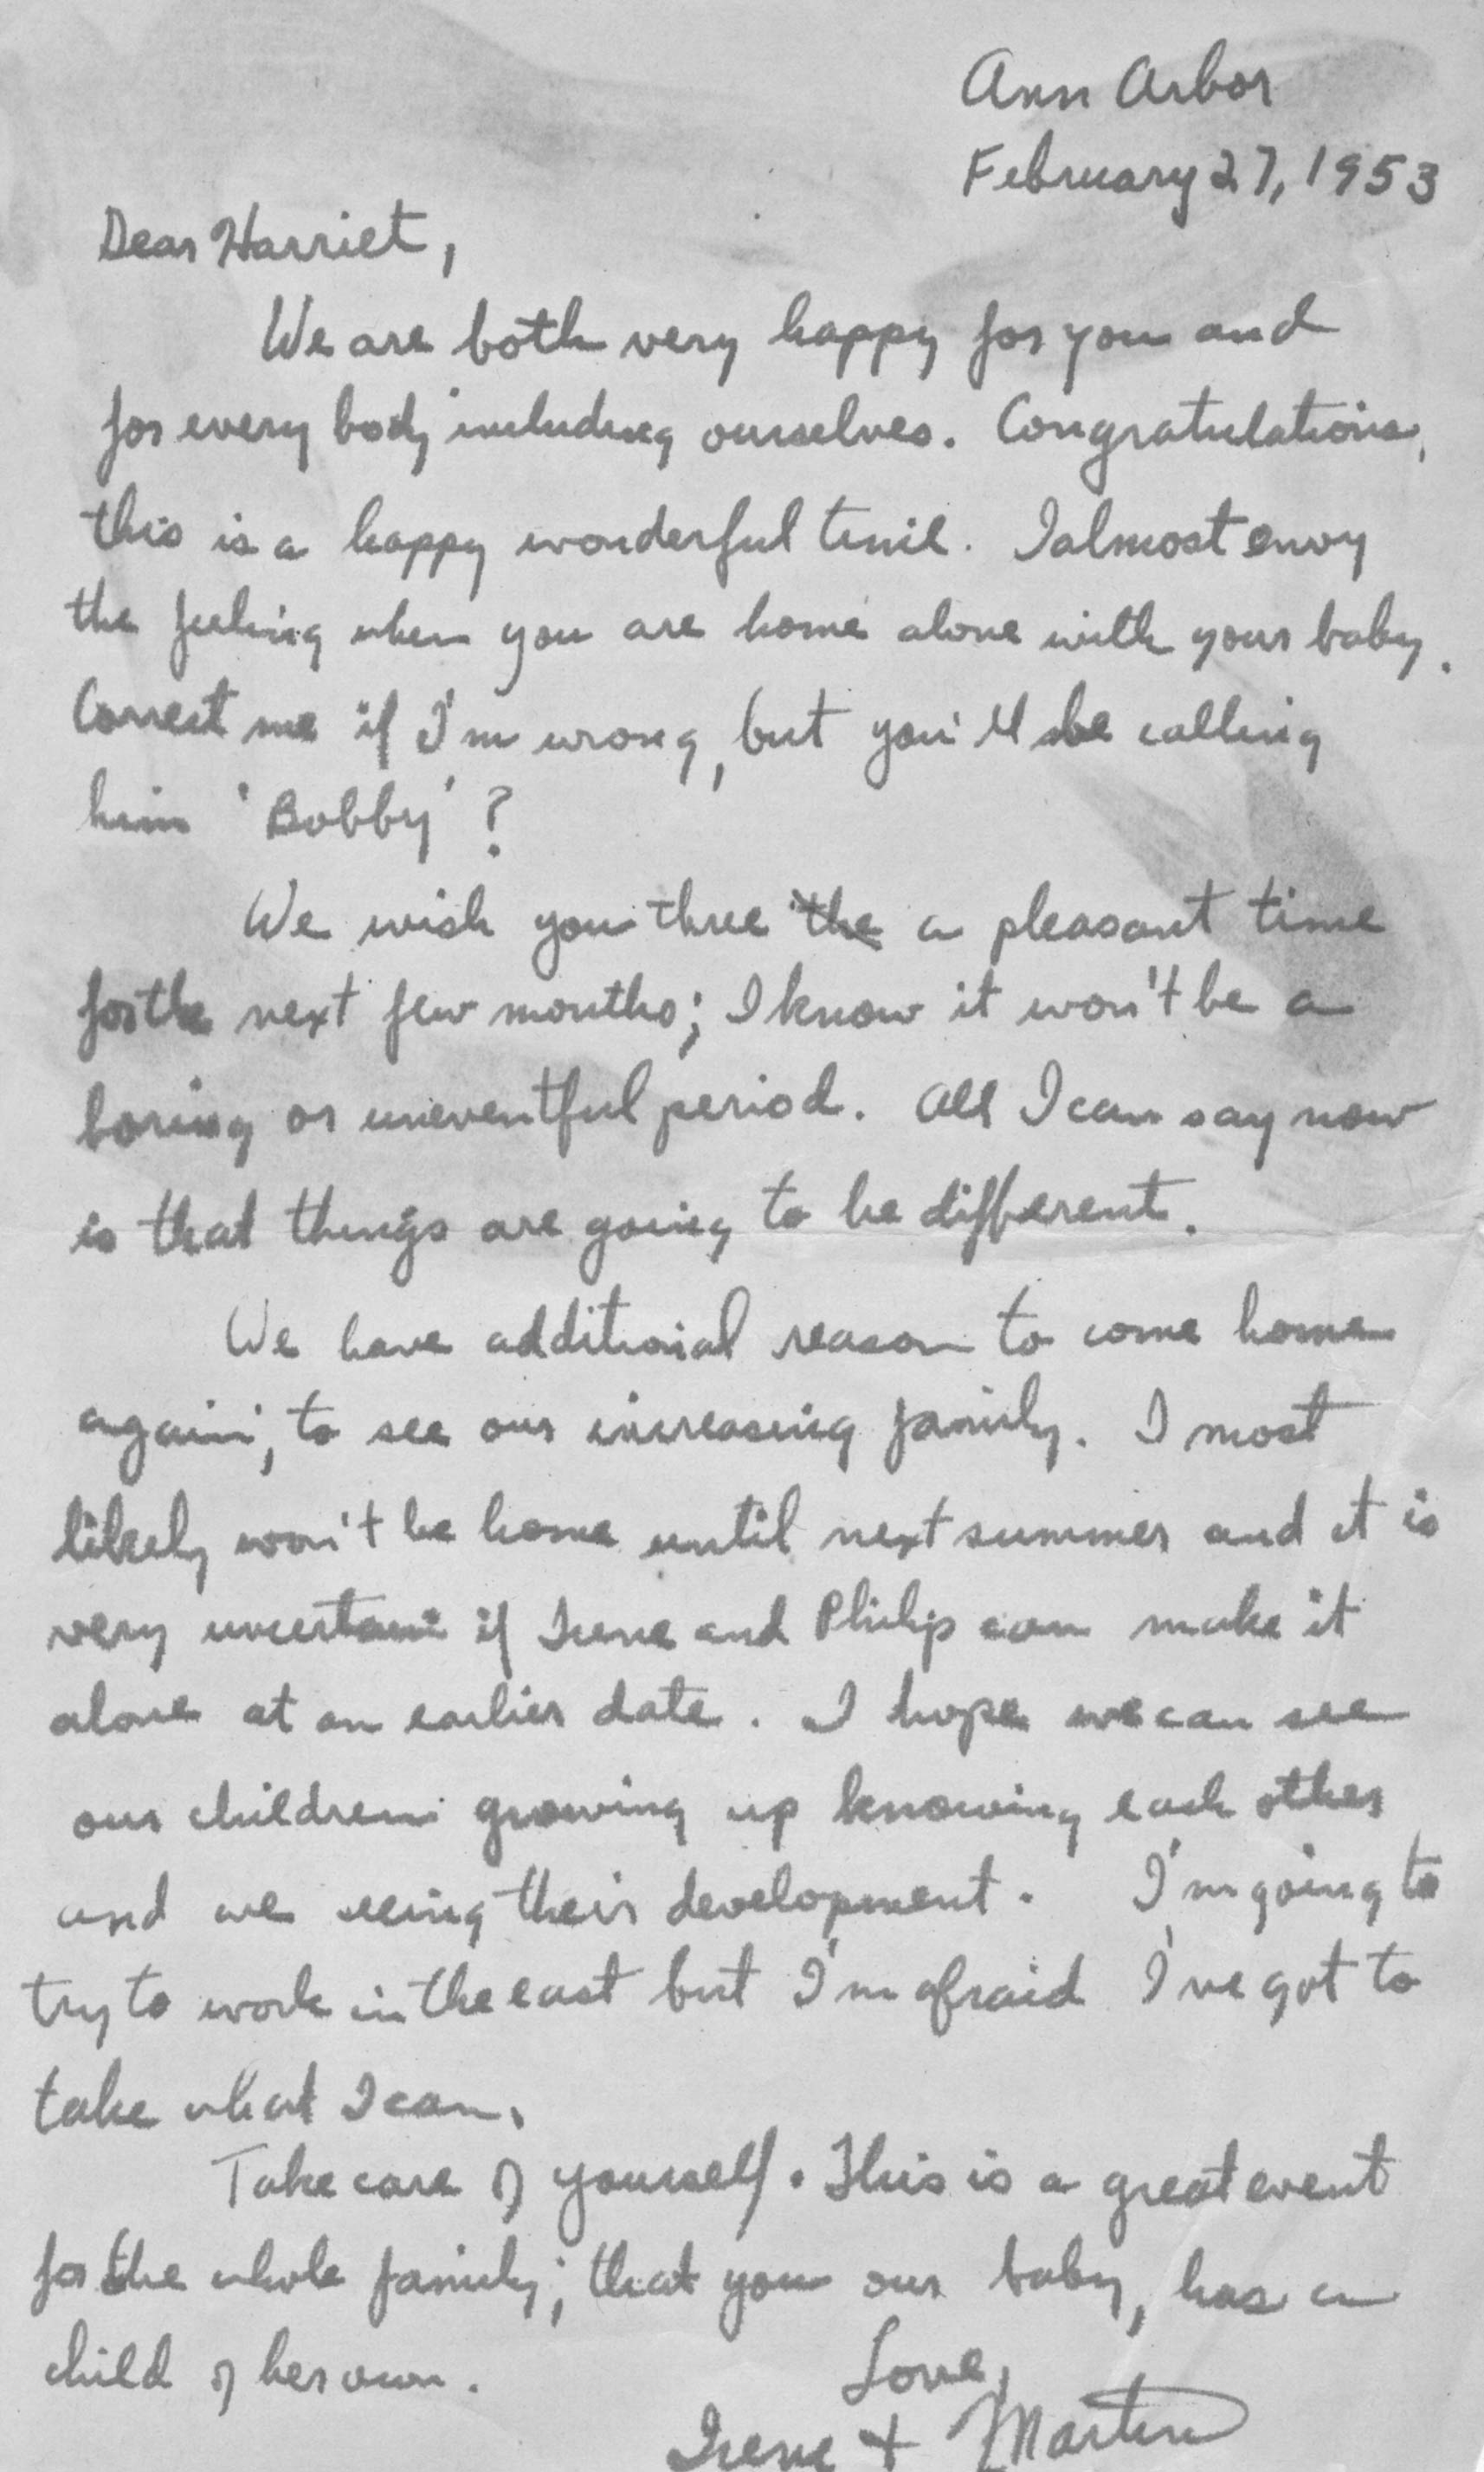 Ann Arbor
February 27, 1953
Dear Harriet,
We are both very happy for you and
for every body including ourselves. Congratulations,
this is a happy wonderful time. I almost envy
the feeling when you are home alone with your baby.
Correct me if I'm wrong, but you'll be calling
him 'Bobby'?
We wish you three the a pleasant time
for the next few months; I know it won't be a
boring or uneventful period. All I can say now
is that things are going to be different.
We have additional reason to come home
again, to see our increasing family. I most
likely won't be home until next summer and it is
very uncertain if Irene and Philip can make it
alone at an earlier date. I hope we can see
our children growing up knowing each other
and we seeing their development. I'm going to
try to work in the east but I'm afraid I've got to
take what I can.
Take care of yourself. This is a great event
for the whole family; that you our baby, has a
child of her own.
Love,
Irene + Martin